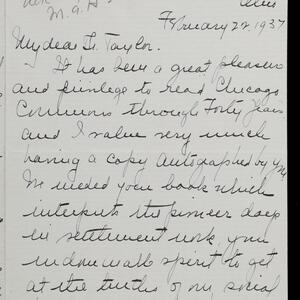 M. G. H
February 22, 1937
My dear Dr. Taylor.
It has been a great pleasure
and privilege to read Chicago
Commons through Forty Years
and I value very much
having a copy autographed by you
We needed your book which
interprets the pioneer days
in settlement work, your
indomitable spirit to get
at the truths of our social